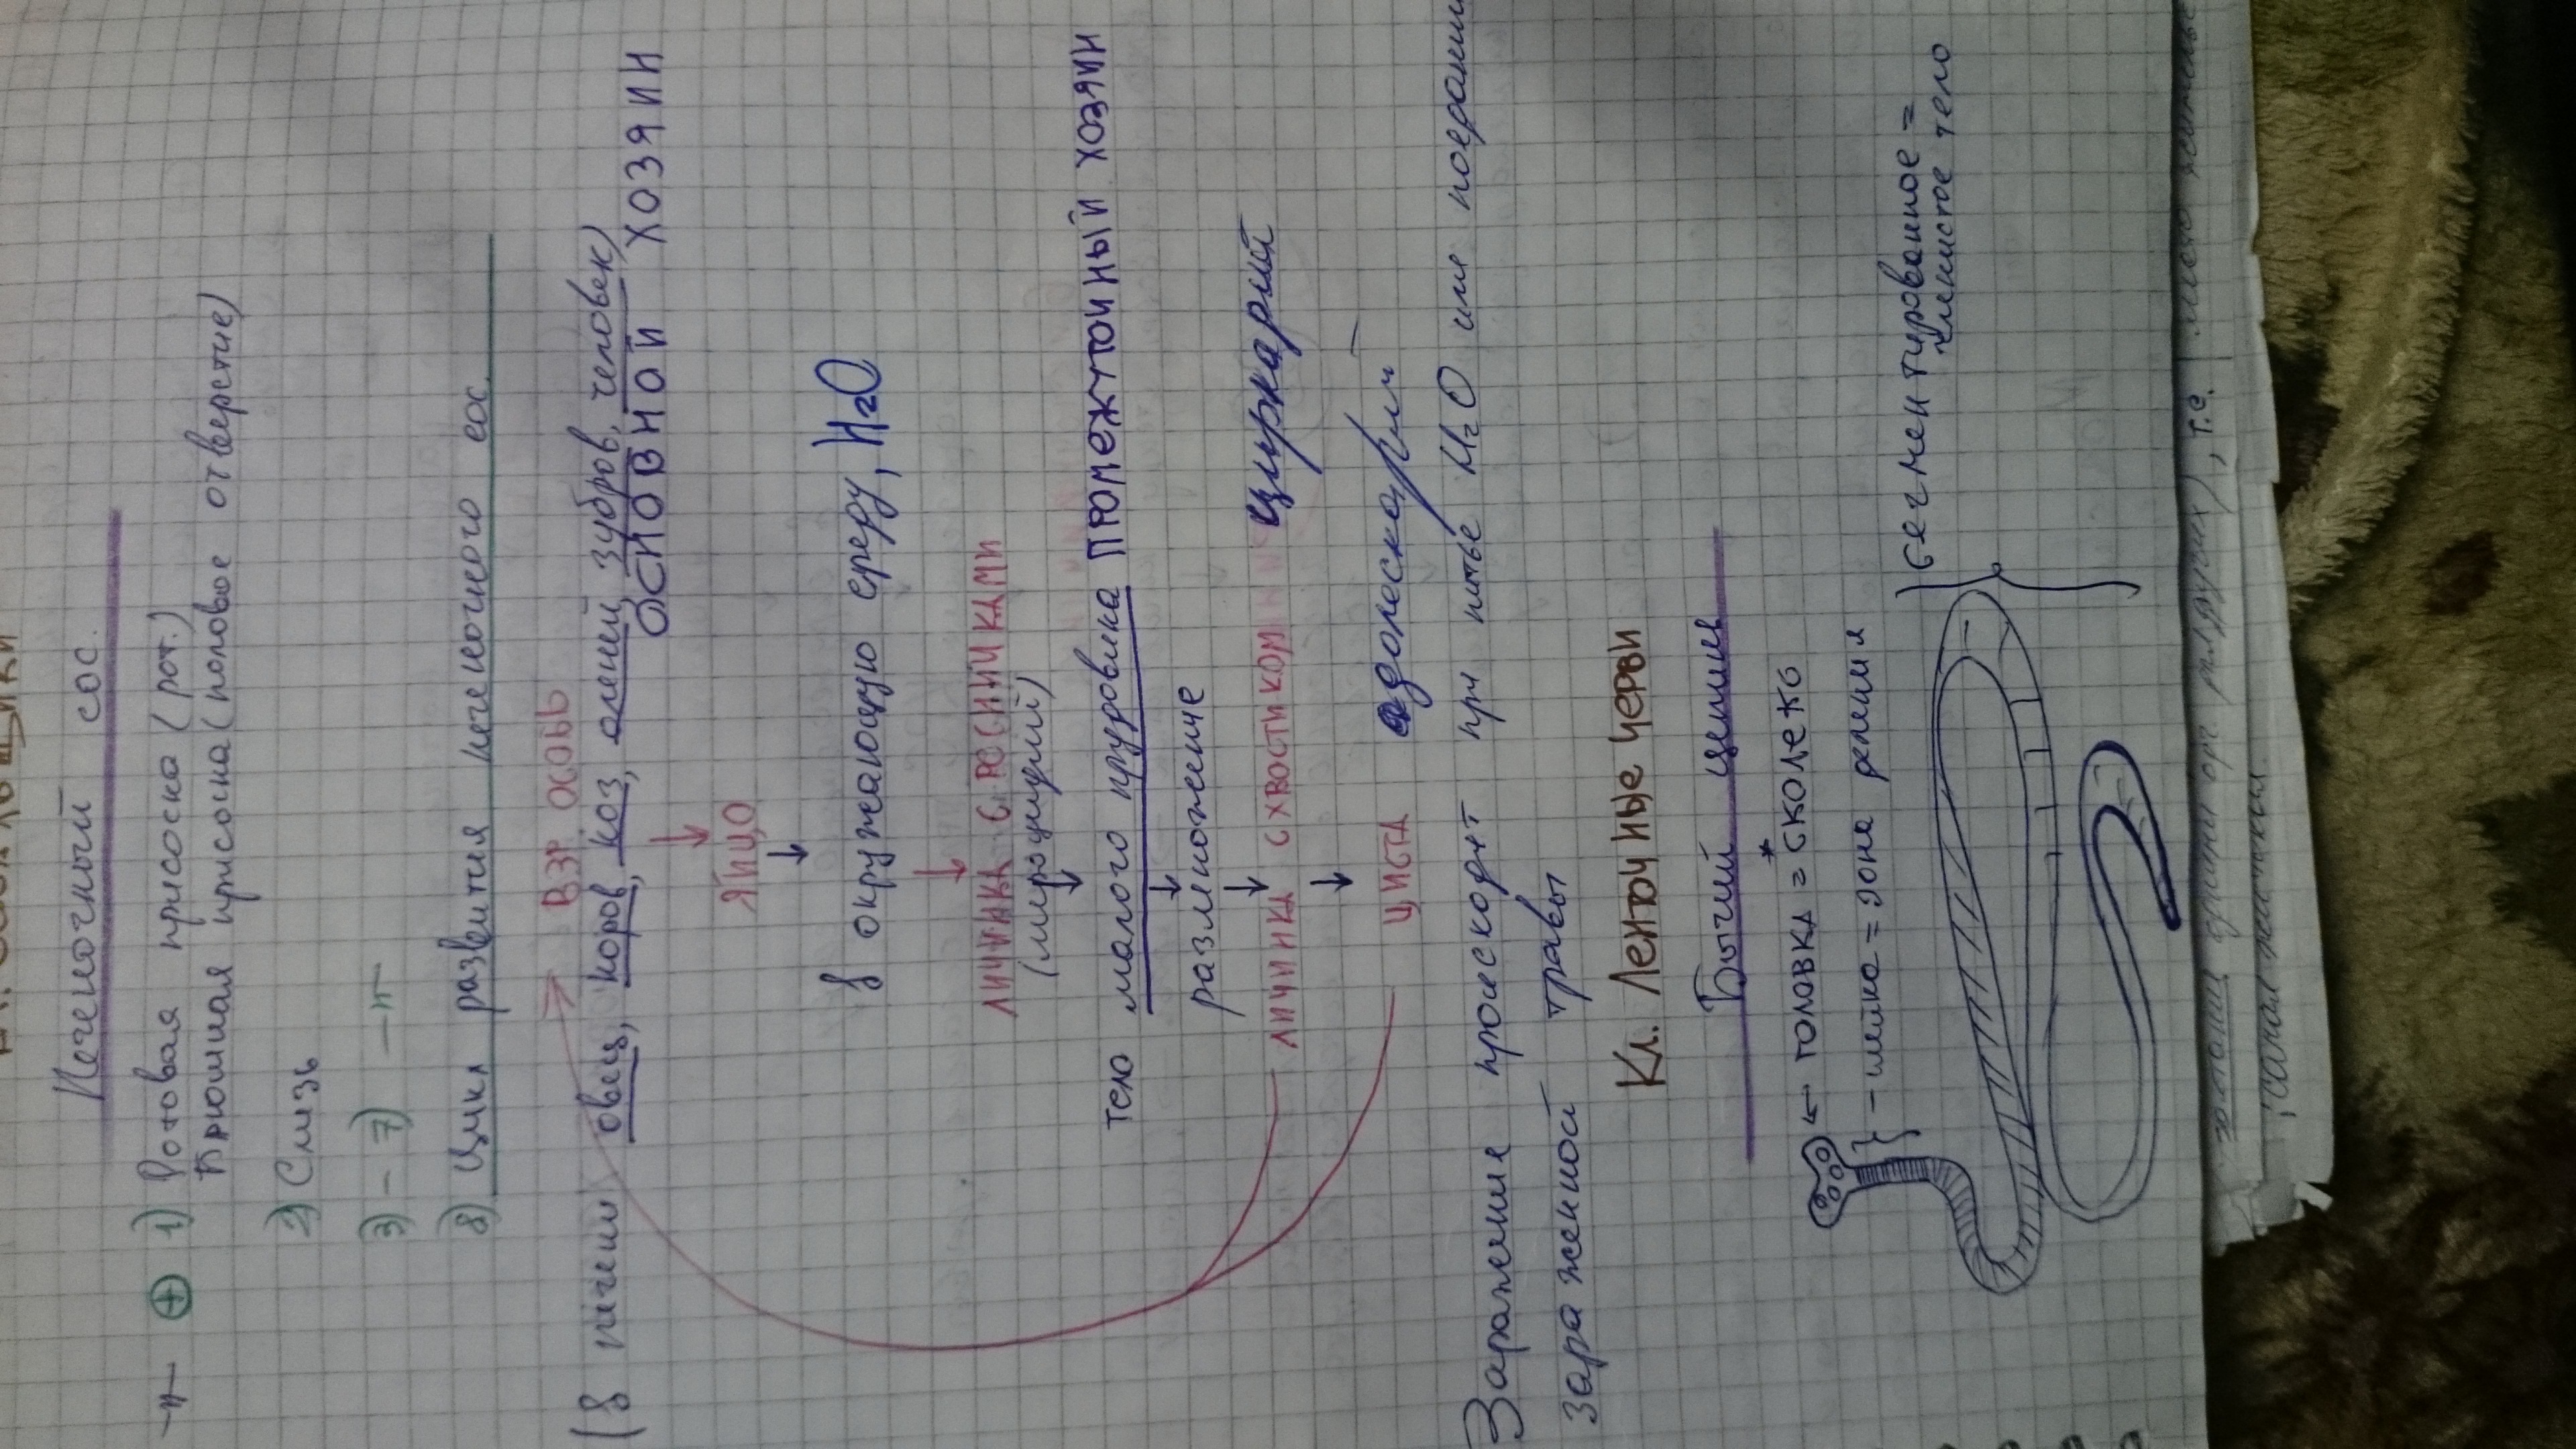 Печеночный сос.
–"– ⊕ 1) Ротовая присоска (рот.)
Брюшная присоска (половое отверстие)
2) Слизь
3) – 7) –"–
8) Цикл развития печеночного сос.
ВЗР ОСОБЬ
(в печени овец, коров, коз, оленей, зубров, человек)
ОСНОВНОЙ ХОЗЯИН
↓
ЯЙЦО
↓
в окружающую среду, H2O
↓
ЛИЧИНКА С РЕСНИЧКАМИ
(мирацидий)
↓
тело малого прудовика ПРОМЕЖУТОЧНЫЙ ХОЗЯИН
↓
размножение
↓
ЛИЧИНКА С ХВОСТИКОМ циркарий
↓
ЦИСТА адолескарий
Заражение происходит при питье H2O или поедании
зараженной травы
Кл. Ленточные черви
Бычий цепень
← ГОЛОВКА = СКОЛЕКС
– шейка = зона деления
сегментированное =
членистое тело